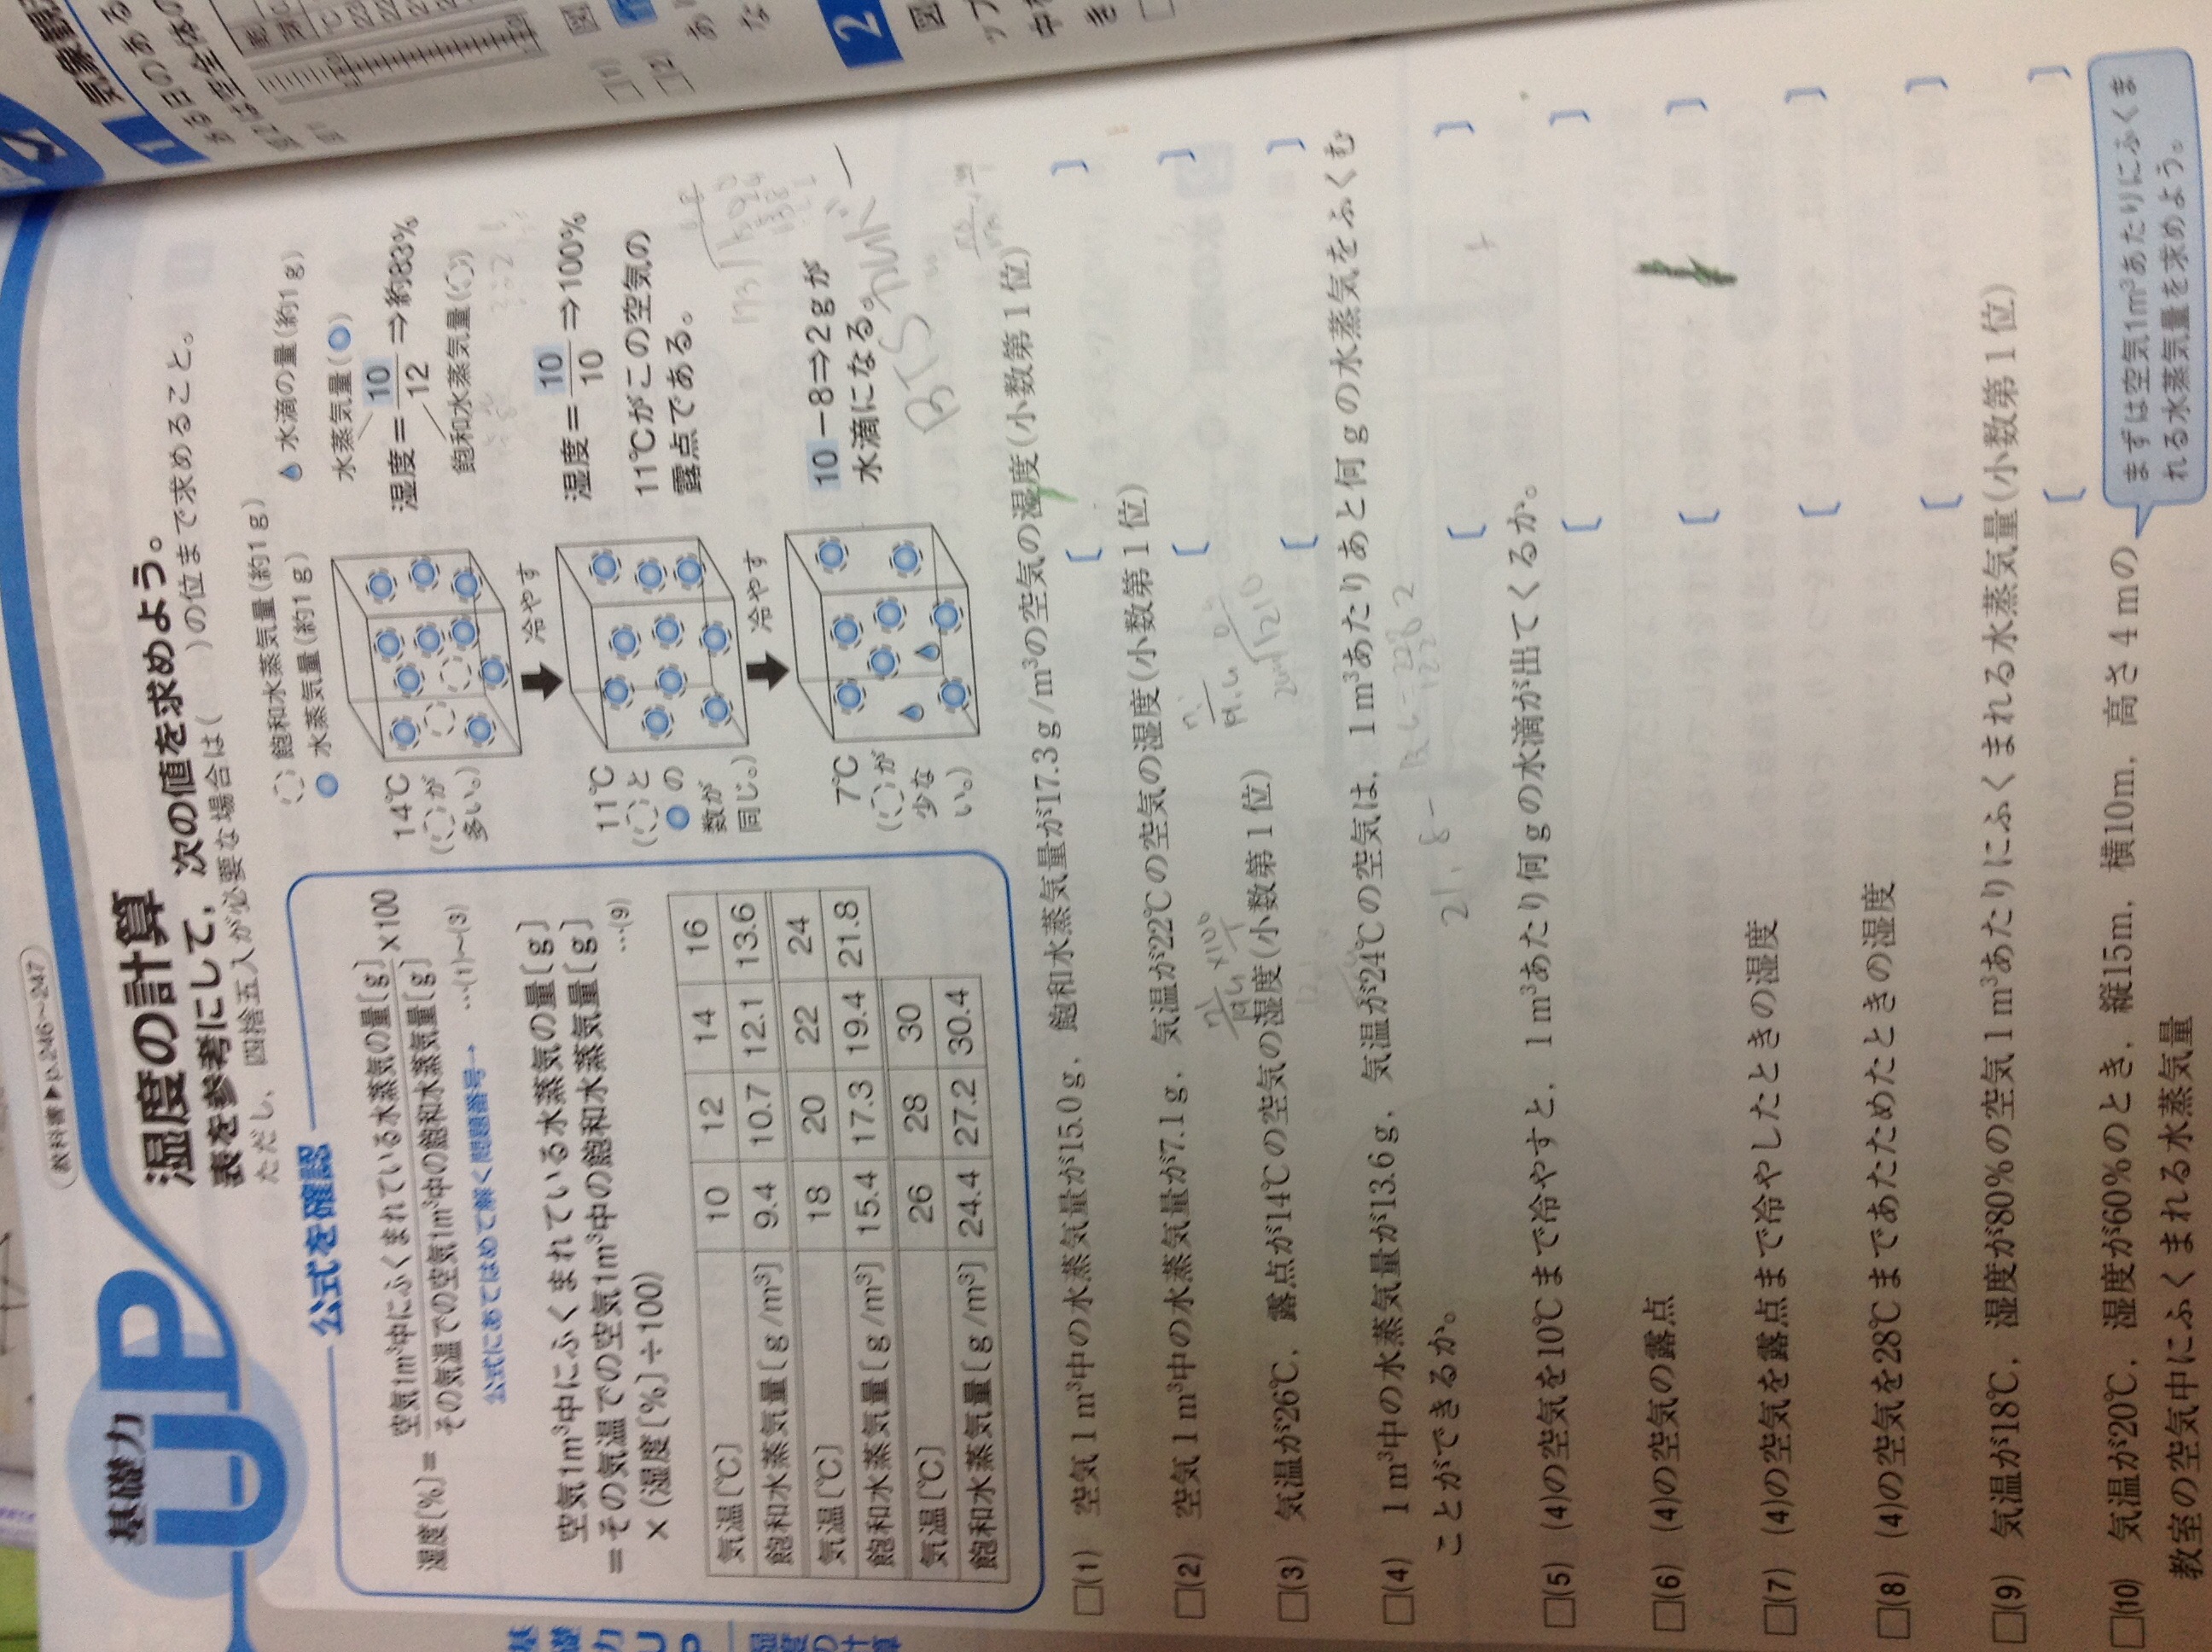 教科書▶p.246~247
基礎力
UP
湿度の計算
表を参考にして，次の値を求めよう。
ただし，四捨五入が必要な場合は(　　)の位まで求めること。
公式を確認
湿度[%]=空気1m³中にふくまれている水蒸気の量[g]/その気温での空気1m³中の飽和水蒸気量[g]×100
公式にあてはめて解く問題番号→ …(1)~(3)
空気1m³中にふくまれている水蒸気の量[g]
=その気温での空気1m³中の飽和水蒸気量[g]
×(湿度[%]÷100) …(9)
気温[℃] 10 12 14 16
飽和水蒸気量[g/m³] 9.4 10.7 12.1 13.6
気温[℃] 18 20 22 24
飽和水蒸気量[g/m³] 15.4 17.3 19.4 21.8
気温[℃] 26 28 30
飽和水蒸気量[g/m³] 24.4 27.2 30.4
飽和水蒸気量(約1g)
水蒸気量(約1g)
水滴の量(約1g)
14℃
(　が
多い。)
水蒸気量(　)
湿度=10/12⇒約83%
飽和水蒸気量(　)
冷やす
11℃
(　と
　の
数が
同じ。)
湿度=10/10⇒100%
11℃がこの空気の
露点である。
冷やす
7℃
(　が
少な
い。)
10-8⇒2gが
水滴になる。
BTS
□(1) 空気1m³中の水蒸気量が15.0g，飽和水蒸気量が17.3g/m³の空気の湿度(小数第1位)
[　]
□(2) 空気1m³中の水蒸気量が7.1g，気温が22℃の空気の湿度(小数第1位)
[　]
□(3) 気温が26℃，露点が14℃の空気の湿度(小数第1位)
[　]
□(4) 1m³中の水蒸気量が13.6g，気温が24℃の空気は，1m³あたりあと何gの水蒸気をふくむ
ことができるか。
[　]
21.8-
□(5) (4)の空気を10℃まで冷やすと，1m³あたり何gの水滴が出てくるか。
[　]
□(6) (4)の空気の露点
[　]
□(7) (4)の空気を露点まで冷やしたときの湿度
[　]
□(8) (4)の空気を28℃まであたためたときの湿度
[　]
□(9) 気温が18℃，湿度が80%の空気1m³あたりにふくまれる水蒸気量(小数第1位)
[　]
□(10) 気温が20℃，湿度が60%のとき，縦15m，横10m，高さ4mの
教室の空気中にふくまれる水蒸気量
まずは空気1m³あたりにふくま
れる水蒸気量を求めよう。
基礎力UP
湿度の計算
1
□(1) 図
□(2)
2